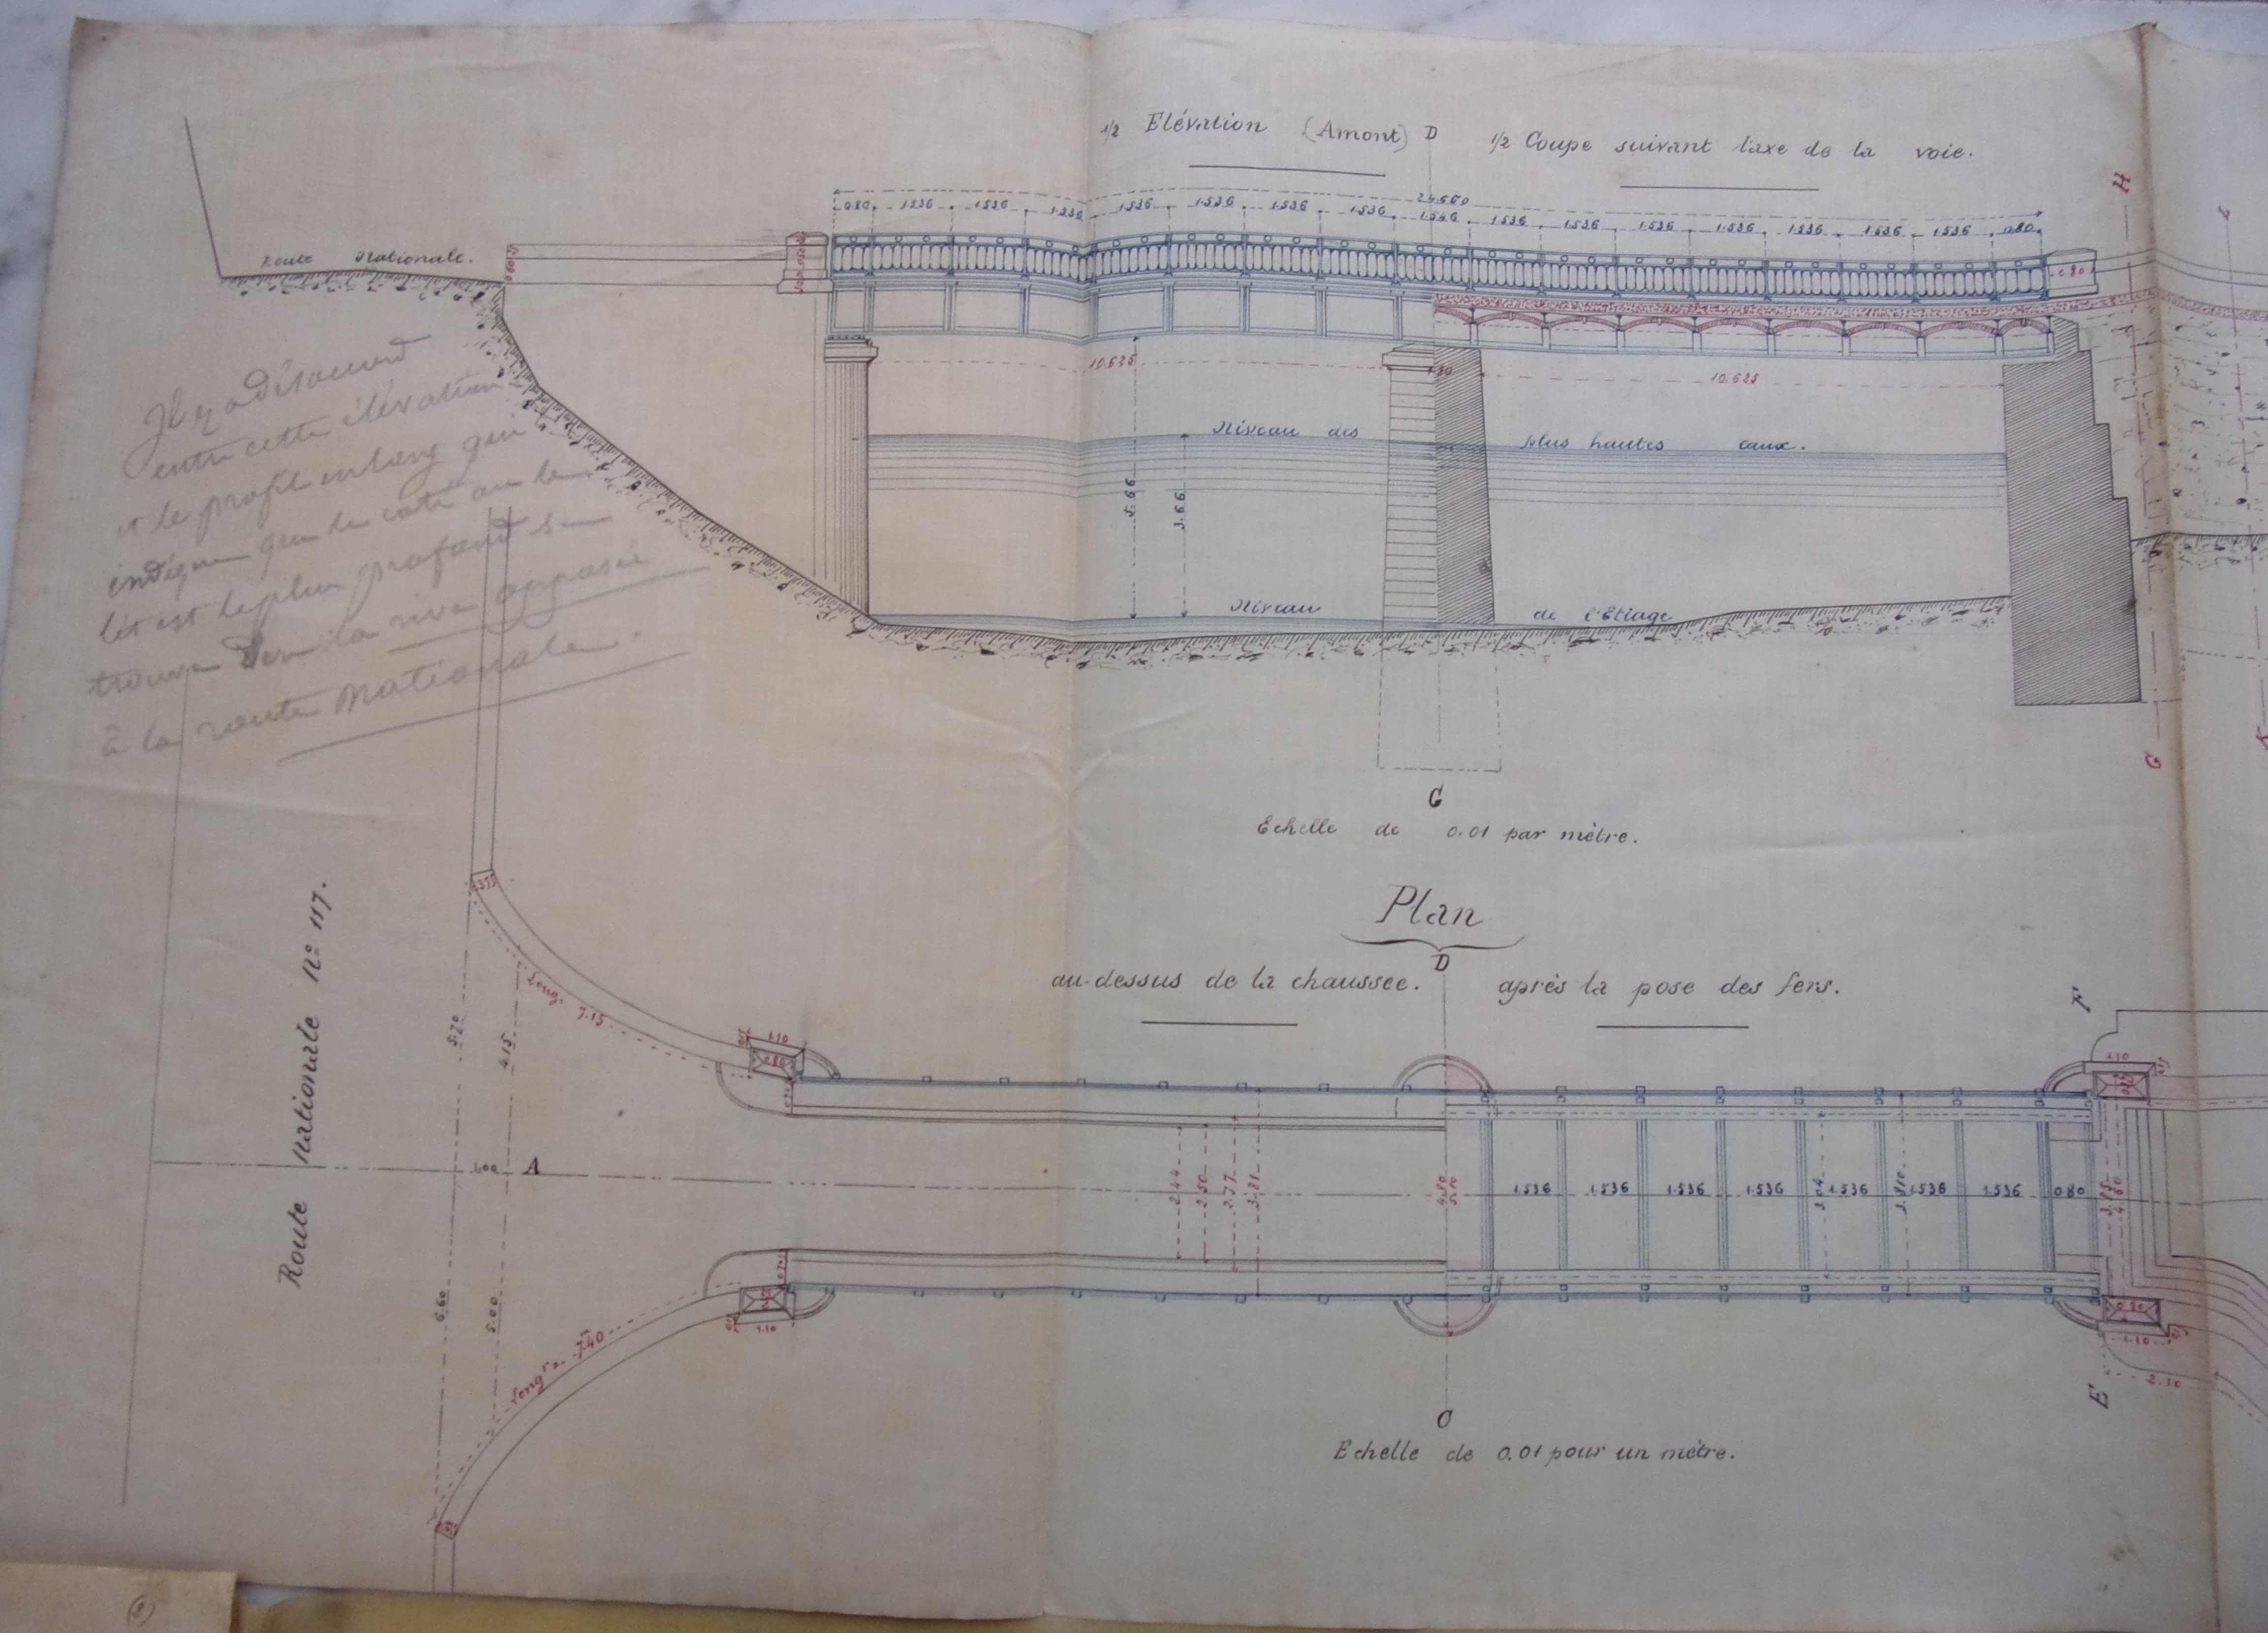 1/2 Elévation (Amont) D 1/2 Coupe suivant l'axe de la voie.
H
24.660
0.80 1.536 1.536 1.536 1.536 1.536 1.536 1.536 1.536 1.536 1.536 1.536 1.536 1.536 1.536 0.80
Route Nationale.
0.80
10.625 1.80 10.625
Niveau des plus hautes eaux.
5.66 3.66
Niveau de l'Etiage
Il y a désaccord
entre cette élévation
et le profil en long qui
indique que le côté où le
lit est le plus profond se
trouve vers la rive opposée
à la route Nationale.
G
K
G
Echelle de 0.01 par mètre.
Plan
D
au-dessus de la chaussee. après la pose des fers.
Route Nationale N° 117.
Longr 7.15
5.20 4.15
1.10
0.80
F
1.10
1.00 A
2.44 2.50 2.77 3.81
4.80
5.10
1.536 1.536 1.536 1.536 1.536 1.536 1.536 0.80
3.04 3.810
6.60 5.00
Longr 7.40
1.10
0.80
1.10
2.10
E
C
Echelle de 0.01 pour un mètre.